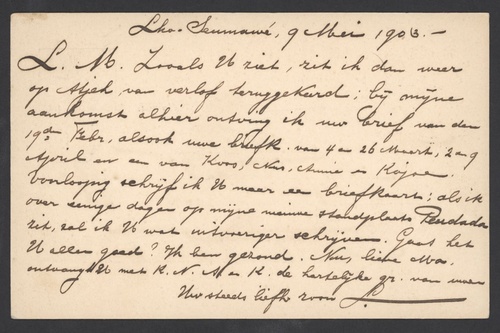 Lho-Seumawé, 9 Mei 1903.-
L. M. Zooals U ziet, zit ik dan weer
op Atjeh, van verlof teruggekeerd; bij mijne
aankomst alhier ontving ik uw brief van den
19den Febr, alsook uwe briefk. van 4 en 26 Maart, 2 en 9
April en en van Koos, Nus, Anna en
Voorloopig schrijf ik U maar een briefkaart; als ik
over eenige dagen op mijne nieuwe standplaats Peudada
zit, zal ik U wat uitvoeriger schrijven. Gaat het
U allen goed? Ik ben gezond. Nu, lieve Moe,
ontvang U met K. N. M en K. de hartelijke gr. van uwen
Uw steeds liefh. zoon